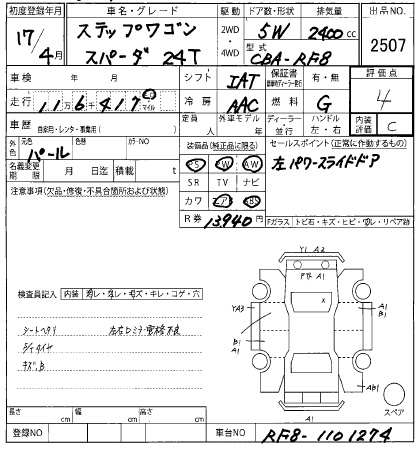 初度登録年月
車名・グレード
駆動
ドア数・形状
排気量
出品NO.
17/4月
ステップワゴン
スパーダ 24T
2WD
・
4WD
5W
2400cc
型式
CBA-RF8
2507
車検 年 月
シフト
IAT
保証書
有・無
評価点
4
走行 11万6千417
マイル
冷房
AAC
燃料
G
車歴 自家用・レンタ・事業用( )
定員
人
外車モデル
年
ディーラー
・
並行
ハンドル
左・右
内装
評価
C
外色
元色
パール
色替
カラーNO
装備品(純正品に限る)
セールスポイント(正常に作動するもの)
PS
PW
AW
左パワースライドドア
名義変更
期限
月 日迄
積載
t
SR
TV
ナビ
注意事項(欠品・修復・不具合箇所および状態)
カワ
エアB
ABS
R券
13,940円
Fガラス
トビ石・キズ・ヒビ・ワレ・リペア跡
検査員記入
内装
コレ・キズ・キレ・コゲ・穴
Y1 A2
A1
X
YA3
B1
A1
A1
B1
シートヘタリ
左右ドミラー電格不良
タイヤ
キズ、B
AB1
スペア
A1
長さ
cm
幅
cm
高さ
cm
登録NO
車台NO
RF8-1101274